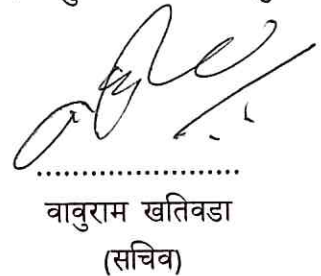 ....................................
वावुराम खतिवडा
(सचिव)